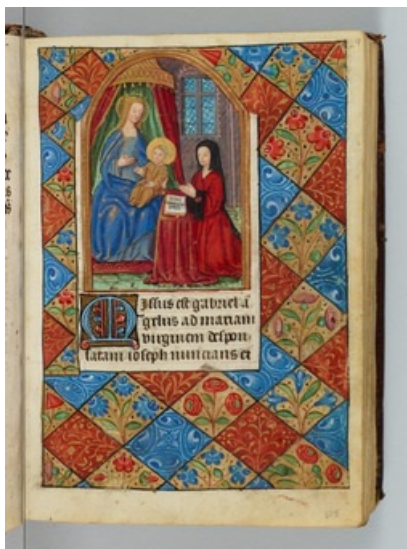 Missus est gabriel ā
gelus ad mariam
virginem despon
satam ioseph nuncians ei